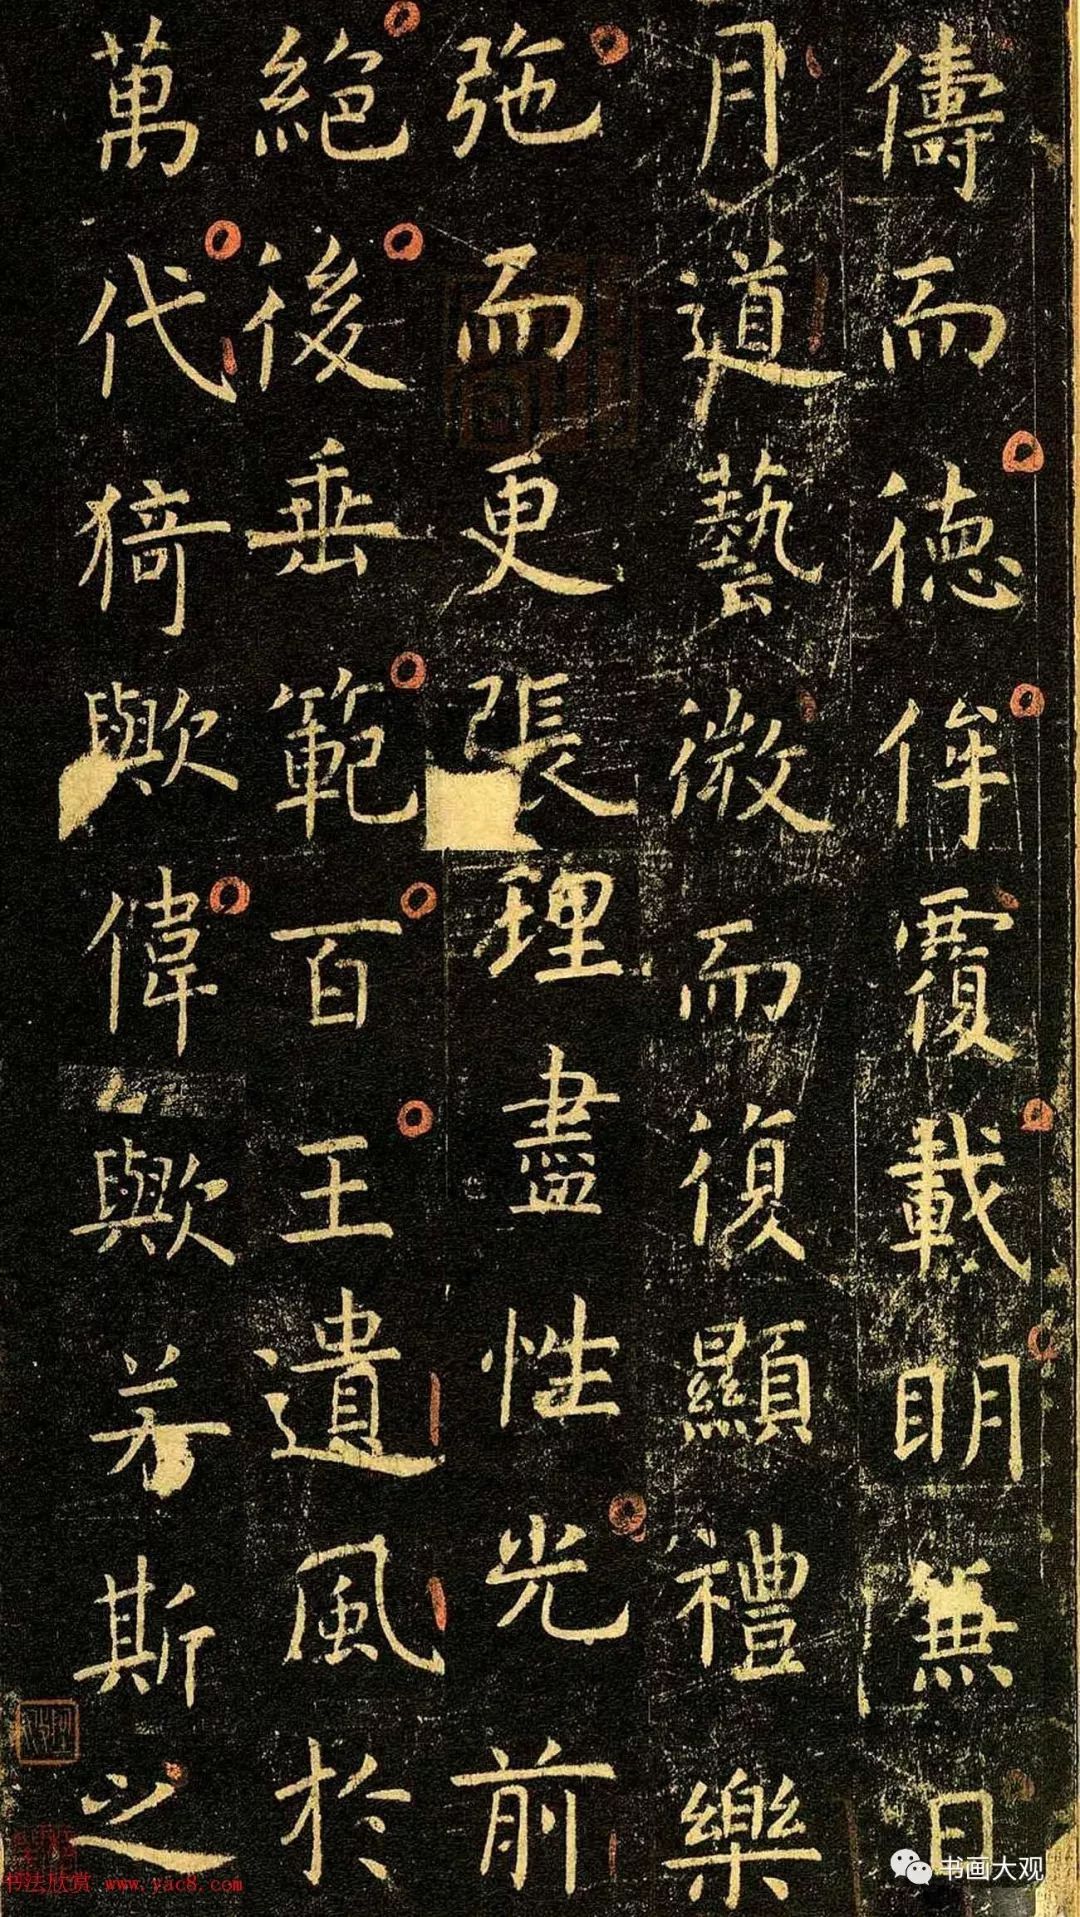 儔而德侔覆載明無日
月道藝微而復顯禮樂
弛而更張理盡性光前
絕後垂範百王遺風於
萬代猗歟偉歟若斯之
书画大观
书法欣赏 www.yac8.com